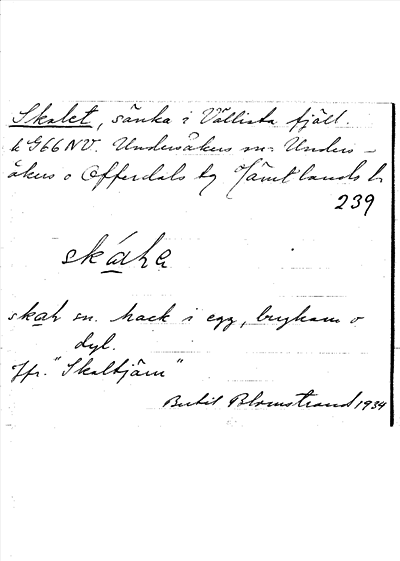 Skalet, sänka i Vällista fjäll.
k G66NV. Undersåkers sn. Unders-
åkers o Offerdals tg Jämtlands l.
239
skáha
skah sn. hack i egg, brykam o
dyl.
Jfr. "Skaltjärn"
Bertil Blomstrand 1934